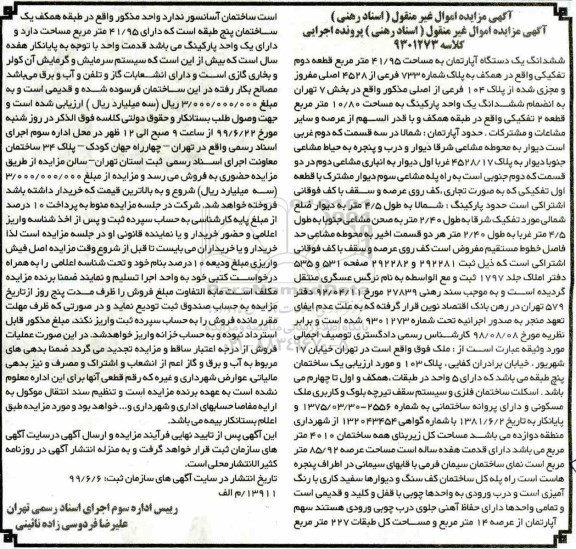 آگهی مزایده اموال غیر منقول ( اسناد رهنی )
آگهی مزایده اموال غیر منقول ( اسناد رهنی ) پرونده اجرایی
کلاسه ۹۳۰۱۲۷۳
ششدانگ یک دستگاه آپارتمان به مساحت ۴۱/۹۵ متر مربع قطعه دوم
تفکیکی واقع در همکف به پلاک شماره ۷۳۳ فرعی از ۴۵۲۸ اصلی مفروز
و مجزی شده از پلاک ۱۰۴ فرعی از اصلی مذکور واقع در بخش ۷ تهران
به انضمام ششدانگ یک واحد پارکینگ به مساحت ۱۰/۸۰ متر مربع
قطعه ۲ تفکیکی واقع در طبقه همکف و با قدر السهم از عرصه و سایر
مشاعات و مشترکات . حدود آپارتمان : شمالا در سه قسمت که دوم غربی
است دیوار به محوطه مشاعی شرقا دیوار و درب و پنجره به حیاط مشاعی
جنوبا دیوار به پلاک ۴۵۲۸/۱۷ غربا اول دیوار به انباری مشاعی دوم در دو
قسمت که دوم جنوبی است به راه پله مشاعی سوم دیوار مشترک با قطعه
اول تفکیکی که به صورت تجاری ،کف روی عرصه و سقف با کف فوقانی
اشتراکی است حدود پارکینگ : شمالا به طول ۴/۵ متر به دیوار ضلع
شمالی مورد تفکیک شرقا بطول ۲/۴۰ متر به صحن مشاعی جنوبا به طول
۴/۵ متر غربا به طول ۲/۴۰ متر هر دو قسمت اخیر به محوطه مشاعی حد
فاصل خطوط مستقیم مفروض است کف روی عرصه و سقف با کف فوقانی
اشتراکی است که ذیل ثبت ۲۹۲۲۸۱ و ۲۹۲۲۸۲ صفحه ۵۳۱ و ۵۳۵
دفتر املاک جلد ۱۷۹۷ ثبت و مع الواسطه به نام نرگس عسگری منتقل
گردیده است و به موجب سند رهنی ۲۷۸۳۹ مورخ ۹۲/۰۴/۰۱ دفتر
۵۷۹ تهران در رهن بانک اقتصاد نوین قرار گرفته که به علت عدم ایفای
تعهد منجر به صدور اجرائیه تحت شماره ۹۳۰۱۲۷۳ شده است و برابر
نظریه مورخ ۹۸/۰۸/۰۸ کارشناس رسمی دادگستری توصیف اجمالی
مورد وثیقه عبارت است از : ملک فوق واقع است در تهران خیابان ۱۷
شهریور ، خیابان برادران کفایی ، پلاک ۱۰۳ و مورد ارزیابی یک ساختمان
پنج طبقه می باشد که دارای ۵ واحد در طبقات ،همکف و اول تا چهارم می
باشد . اسکلت ساختمان فلزی و سیستم سقف تیرچه بلوک و کاربری ملک
مسکونی و دارای پروانه ساختمانی به شماره ۲۵۵۶-۱۳۷۵/۰۳/۳۰ و
پایانکار به تاریخ ۱۳۸۱/۶/۲ با شماره گواهی ۱۳۲۰۴۳۴۵۴ از شهرداری
منطقه دوازده می باشد مساحت کل زیربنای همه ساختمان ۴۰۱۰ متر
مربع می باشد دارای قدمت هفده ساله است مساحت عرصه ۸۵/۹۲ متر
مربع است نمای ساختمان سیمان فرمی با قابهای سیمانی در اطراف پنجره
هاست است راه پله کل ساختمان کف سنگ و دیوارها سفید کاری با رنگ
آمیزی است و درب ورودی به واحدها چوبی با قفل و کلید و قدیمی است
و تمامی واحدها دارای حفاظ آهنی جلوی درب چوبی ورودی هستند سهم
آپارتمان از عرصه ۱۴ متر مربع و مساحت کل طبقات ۲۲۷ متر مربع
است ساختمان آسانسور ندارد واحد مذکور واقع در طبقه همکف یک
ساختمان پنج طبقه است که دارای ۴۱/۹۵ متر مربع مساحت دارد و
دارای یک واحد پارکینگ می باشد قدمت واحد با توجه به پایانکار هفده
سال است که بیش از این است که سیستم سرمایش و گرمایش آن کولر
و بخاری گازی است و دارای انشعابات گاز و تلفن و آب و برق می‌باشد
مصالح بکار رفته در این ساختمان فرسوده شده و قدیمی است و به
مبلغ ۳/۰۰۰/۰۰۰/۰۰۰ ریال (سه میلیارد ریال ) ارزیابی شده است و
جهت وصول طلب بستانکار و حقوق دولتی کلاسه فوق الذکر در روز شنبه
مورخ ۹۹/۶/۲۲ از ساعت ۹ صبح الی ۱۲ ظهر در محل اداره سوم اجرای
اسناد رسمی واقع در تهران - چهارراه جهان کودک - پلاک ۳۴ ساختمان
معاونت اجرای اسناد رسمی ثبت استان تهران- سالن مزایده از طریق
مزایده حضوری به فروش می رسد و مزایده از مبلغ ۳/۰۰۰/۰۰۰/۰۰۰
(سه میلیارد ریال) شروع و به بالاترین قیمت که خریدار داشته باشد
فروخته خواهد شد. شرکت در جلسه مزایده منوط به پرداخت ۱۰ درصد
از مبلغ پایه کارشناسی به حساب سپرده ثبت و پس از اخذ شناسه واریز
اعلامی و حضور خریدار و یا نماینده قانونی او در جلسه مزایده است لذا
خریدار و یا خریداران می بایست تا قبل از شروع وقت مزایده اصل فیش
واریزی مبلغ ودیعه ۱۰ درصد بنام خود و تحت شناسه اعلامی را به همراه
درخواست کتبی خود به واحد اجرا تسلیم و نمایند ضمنا برنده مزایده
مکلف است مابه التفاوت مبلغ فروش را ظرف مدت پنج روز از تاریخ
مزایده به حساب صندوق ثبت تودیع نماید و در صورتی که ظرف مهلت
مقرر مانده فروش را به حساب سپرده ثبت واریز نکند، مبلغ مذکور قابل
استرداد نبوده و به حساب خزانه واریز خواهد شد. در این صورت عملیات
فروش از درجه اعتبار ساقط و مزایده تجدید می گردد ضمنا بدهی های
مربوط به آب و برق و گاز اعم از انشعاب و اشتراک و مصرف و نیز بدهی
مالیاتی، عوارض شهرداری و غیره که رقم قطعی آنها برای این اداره معلوم
نشده است به عهده برنده مزایده است و تنظیم سند انتقال موکول به
ارایه مفاصا حسابهای اداری و شهرداری و... خواهد بود و مورد مزایده طبق
اعلام بستانکار بیمه می باشد.
این آگهی پس از تایید نهایی فرآیند مزایده و ارسال آگهی در سایت آگهی
های سازمان ثبت قرار خواهد گرفت و به منزله انتشار آگهی در روزنامه
کثیر الانتشار محلی است.
تاریخ انتشار در سایت آگهی های سازمان ثبت: ۹۹/۶/۶
۱۳۹۱۱/م الف
رییس اداره سوم اجرای اسناد رسمی تهران
علیرضا فردوسی زاده نائینی